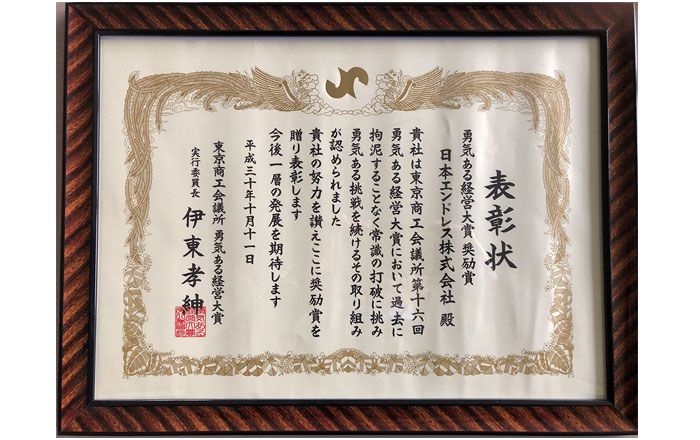 表彰状
勇気ある経営大賞 奨励賞
日本エンドレス株式会社 殿
貴社は東京商工会議所第十六回
勇気ある経営大賞において過去に
拘泥することなく常識の打破に挑み
勇気ある挑戦を続けるその取り組み
が認められました
貴社の努力を讃えここに奨励賞を
贈り表彰します
今後一層の発展を期待します
平成三十年十月十一日
東京商工会議所 勇気ある経営大賞
実行委員長 伊東孝紳